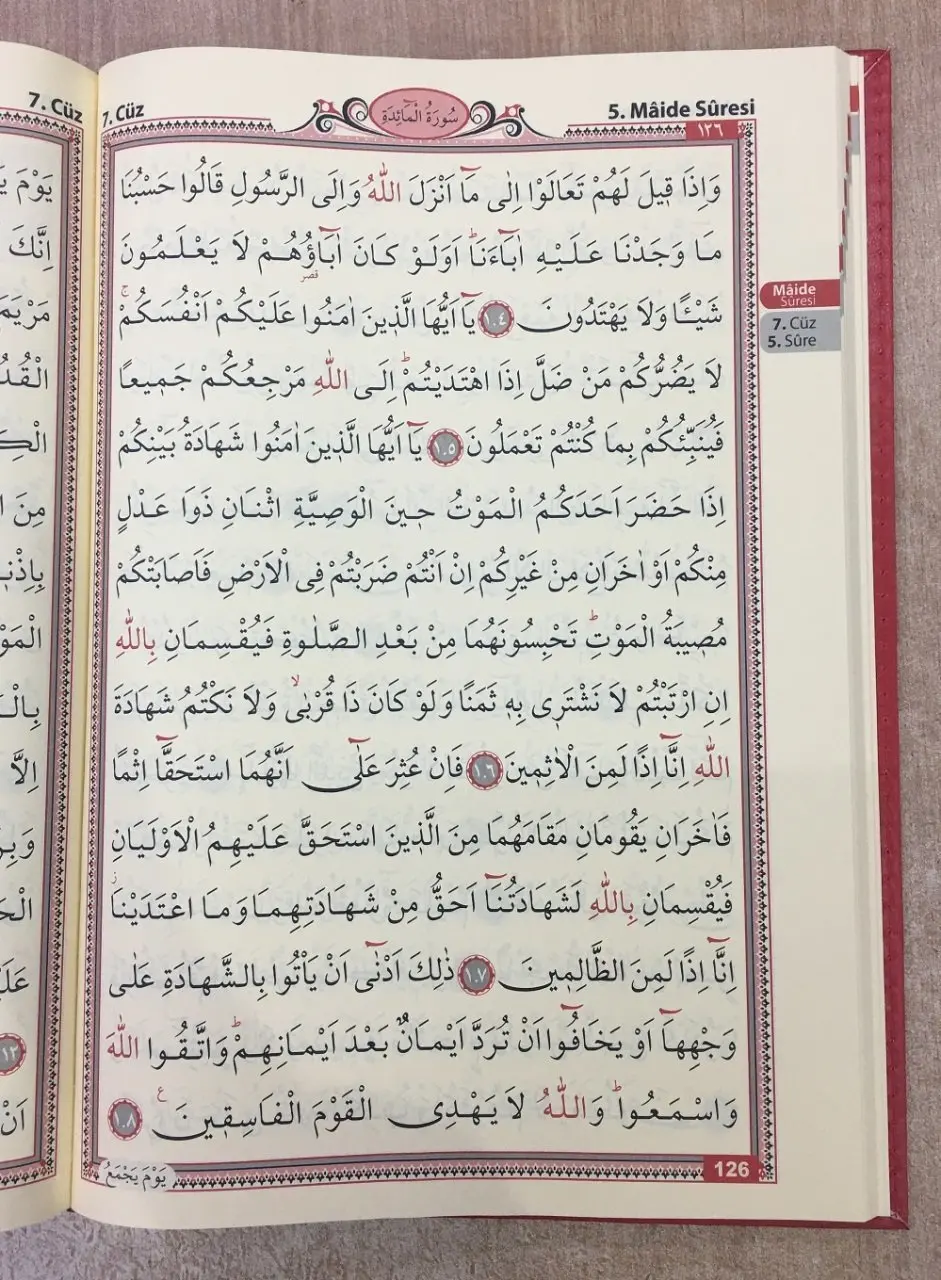 7. Cüz
سُورَةُ الْمَائِدَةِ
5. Mâide Sûresi
١٢٦
وَاِذَا قٖيلَ لَهُمْ تَعَالَوْا اِلٰى مَٓا اَنْزَلَ اللّٰهُ وَاِلَى الرَّسُولِ قَالُوا حَسْبُنَا
مَا وَجَدْنَا عَلَيْهِ اٰبَٓاءَنَاؕ اَوَلَوْ كَانَ اٰبَٓاؤُ۬هُمْ لَا يَعْلَمُونَ
قصر
شَيْـًٔا وَلَا يَهْتَدُونَ ﴿١٠٤﴾ يَٓا اَيُّهَا الَّذٖينَ اٰمَنُوا عَلَيْكُمْ اَنْفُسَكُمْۚ
لَا يَضُرُّكُمْ مَنْ ضَلَّ اِذَا اهْتَدَيْتُمْؕ اِلَى اللّٰهِ مَرْجِعُكُمْ جَمٖيعًا
فَيُنَبِّئُكُمْ بِمَا كُنْتُمْ تَعْمَلُونَ ﴿١٠٥﴾ يَٓا اَيُّهَا الَّذٖينَ اٰمَنُوا شَهَادَةُ بَيْنِكُمْ
اِذَا حَضَرَ اَحَدَكُمُ الْمَوْتُ حٖينَ الْوَصِيَّةِ اثْنَانِ ذَوَا عَدْلٍ
مِنْكُمْ اَوْ اٰخَرَانِ مِنْ غَيْرِكُمْ اِنْ اَنْتُمْ ضَرَبْتُمْ فِى الْاَرْضِ فَاَصَابَتْكُمْ
مُصٖيبَةُ الْمَوْتِؕ تَحْبِسُونَهُمَا مِنْ بَعْدِ الصَّلٰوةِ فَيُقْسِمَانِ بِاللّٰهِ
اِنِ ارْتَبْتُمْ لَا نَشْتَرٖى بِهٖ ثَمَنًا وَلَوْ كَانَ ذَا قُرْبٰىۙ وَلَا نَكْتُمُ شَهَادَةَ
اللّٰهِ اِنَّٓا اِذًا لَمِنَ الْاٰثِمٖينَ ﴿١٠٦﴾ فَاِنْ عُثِرَ عَلٰٓى اَنَّهُمَا اسْتَحَقَّٓا اِثْمًا
فَاٰخَرَانِ يَقُومَانِ مَقَامَهُمَا مِنَ الَّذٖينَ اسْتَحَقَّ عَلَيْهِمُ الْاَوْلَيَانِ
فَيُقْسِمَانِ بِاللّٰهِ لَشَهَادَتُنَٓا اَحَقُّ مِنْ شَهَادَتِهِمَا وَمَا اعْتَدَيْنَاؗ
اِنَّٓا اِذًا لَمِنَ الظَّالِمٖينَ ﴿١٠٧﴾ ذٰلِكَ اَدْنٰٓى اَنْ يَأْتُوا بِالشَّهَادَةِ عَلٰى
وَجْهِهَٓا اَوْ يَخَافُٓوا اَنْ تُرَدَّ اَيْمَانٌ بَعْدَ اَيْمَانِهِمْؕ وَاتَّقُوا اللّٰهَ
وَاسْمَعُواؕ وَاللّٰهُ لَا يَهْدِى الْقَوْمَ الْفَاسِقٖينَ ﴿١٠٨﴾
ع
يَوْمَ يَجْمَعُ
126
Mâide
Sûresi
7. Cüz
5. Sûre
7. Cüz
يَوْمَ
اِنَّكَ
مَرْيَمَ
مِنَ
اِلَّا
اَنْ